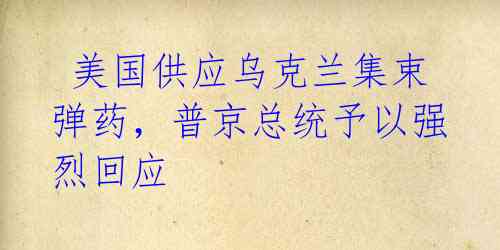 美国供应乌克兰集束
弹药，普京总统予以强
烈回应